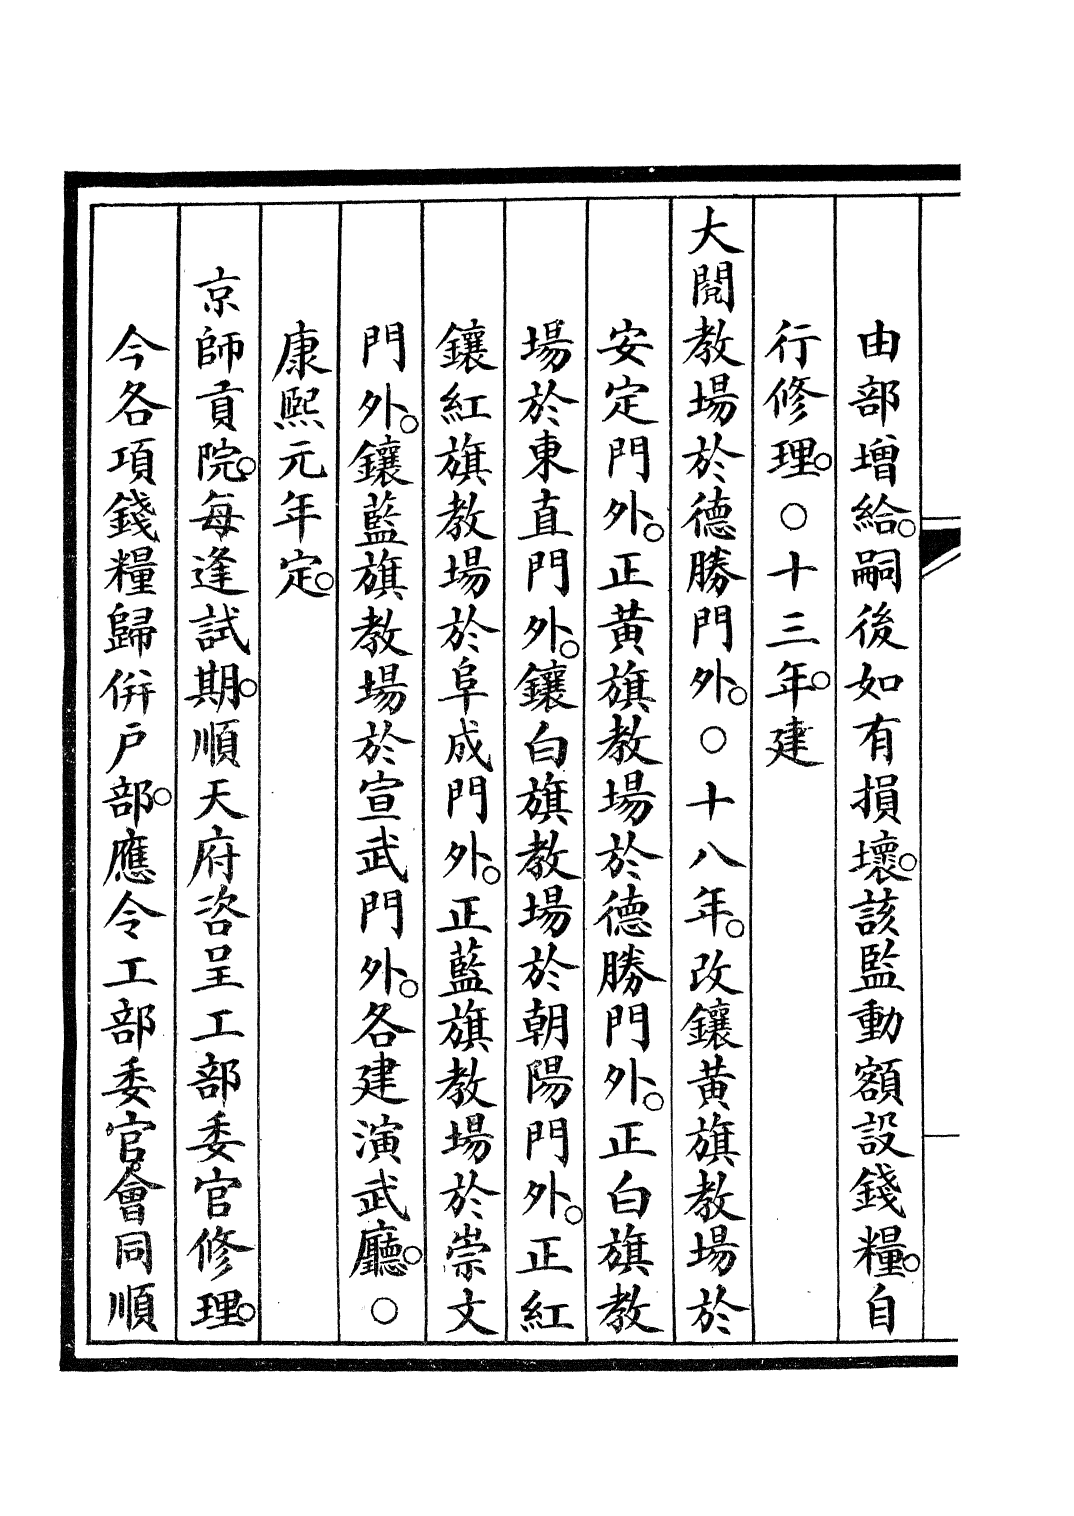 由部增給。嗣後如有損壞。該監動額設錢糧。自
行修理。○十三年。建
大閱教場於德勝門外。○十八年。改鑲黃旗教場於
安定門外。正黃旗教場於德勝門外。正白旗教
場於東直門外。鑲白旗教場於朝陽門外。正紅
鑲紅旗教場於阜成門外。正藍旗教場於崇文
門外。鑲藍旗教場於宣武門外。各建演武廳。○
康熙元年定。
京師貢院。每逢試期。順天府咨呈工部委官修理。
今各項錢糧歸併戶部。應令工部委官。會同順